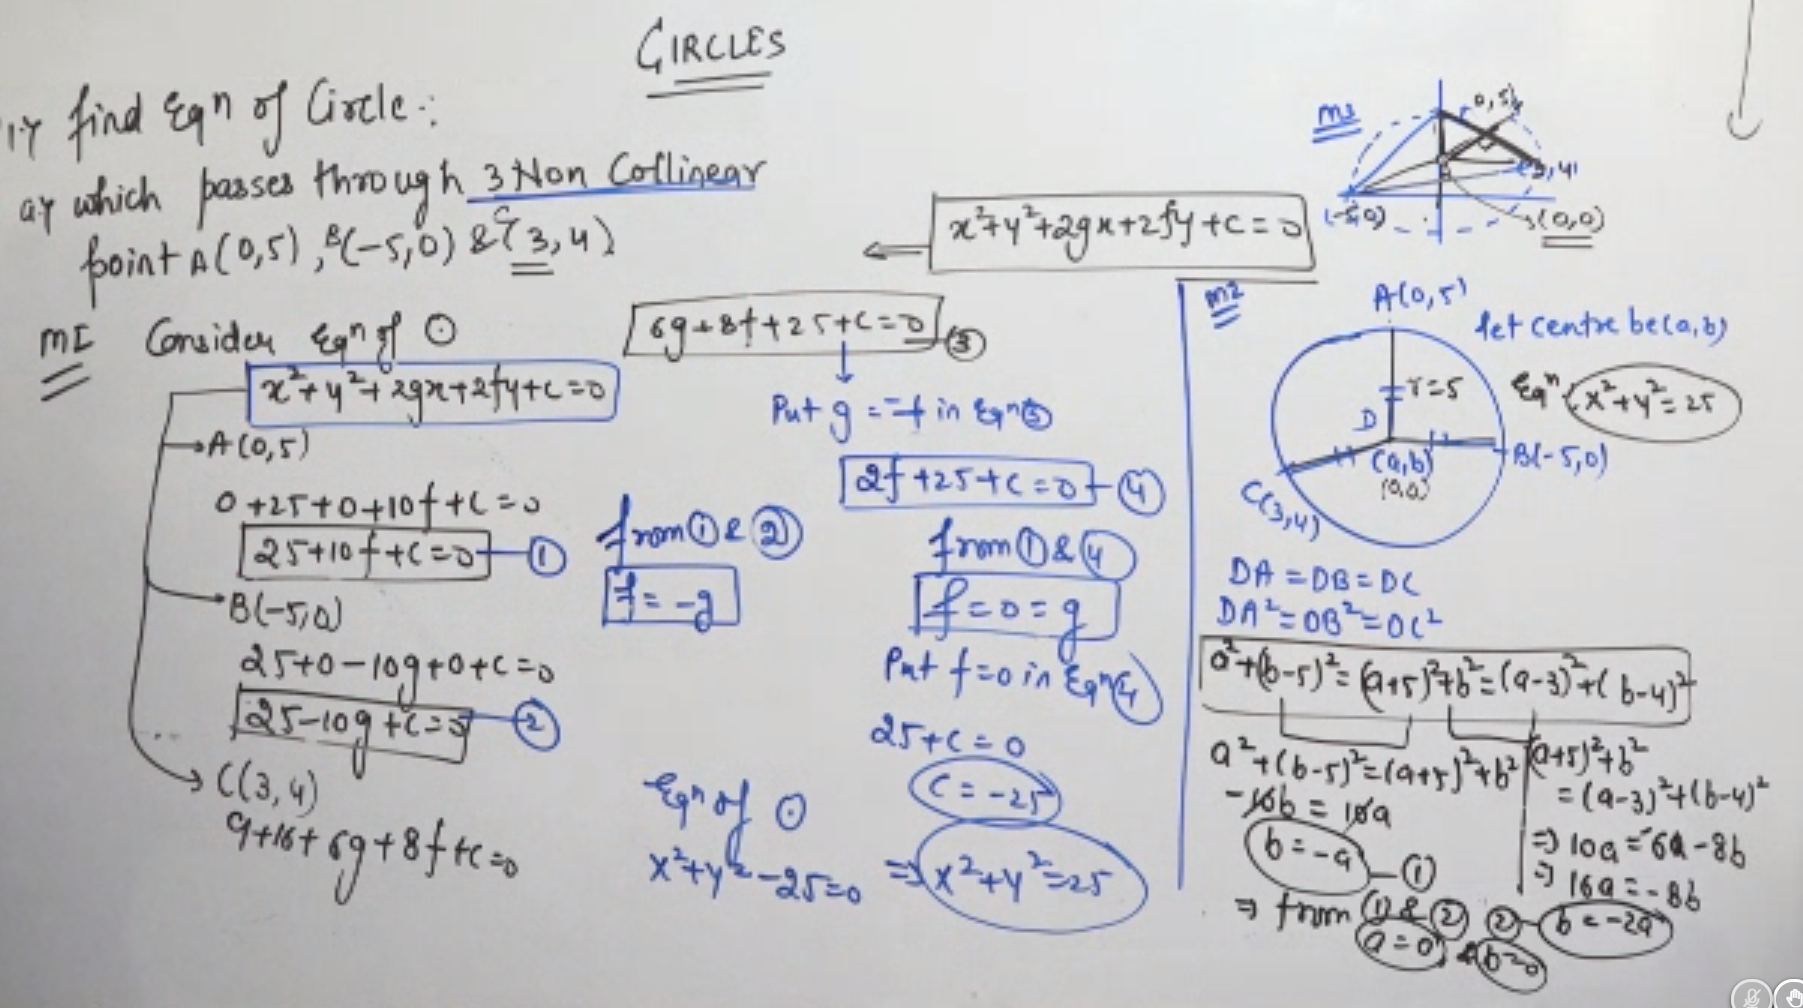 CIRCLES
1.) find Eqn of Circle :
a) which passes through 3 Non Collinear
point A(0,5), B(-5,0) & C(3,4)
x²+y²+2gx+2fy+c=0
MI Consider Eqn of ⊙
x²+y²+2gx+2fy+c=0
→A(0,5)
0+25+0+10f+c=0
25+10f+c=0 ①
→B(-5,0)
25+0-10g+0+c=0
25-10g+c=0 ②
→C(3,4)
9+16+6g+8f+c=0
6g+8f+25+c=0 ③
from ① & ②
f=-g
Put g=-f in Eqn ③
2f+25+c=0 ④
from ① & ④
f=0=g
Put f=0 in Eqn ④
25+c=0
c=-25
Eqn of ⊙
x²+y²-25=0 ⇒ x²+y²=25
M2
A(0,5)
let centre be (a,b)
r=5
Eqn x²+y²=25
D
(a,b)
(0,0)
B(-5,0)
C(3,4)
DA=DB=DC
DA²=DB²=DC²
a²+(b-5)²=(a+5)²+b²=(a-3)²+(b-4)²
a²+(b-5)²=(a+5)²+b²
-10b=10a
b=-a ①
(a+5)²+b²
=(a-3)²+(b-4)²
⇒ 10a=-6a-8b
⇒ 16a=-8b
② b=-2a
⇒ from ① & ②
a=0 & b=0
M3
(0,5)
(3,4)
(-5,0)
(0,0)